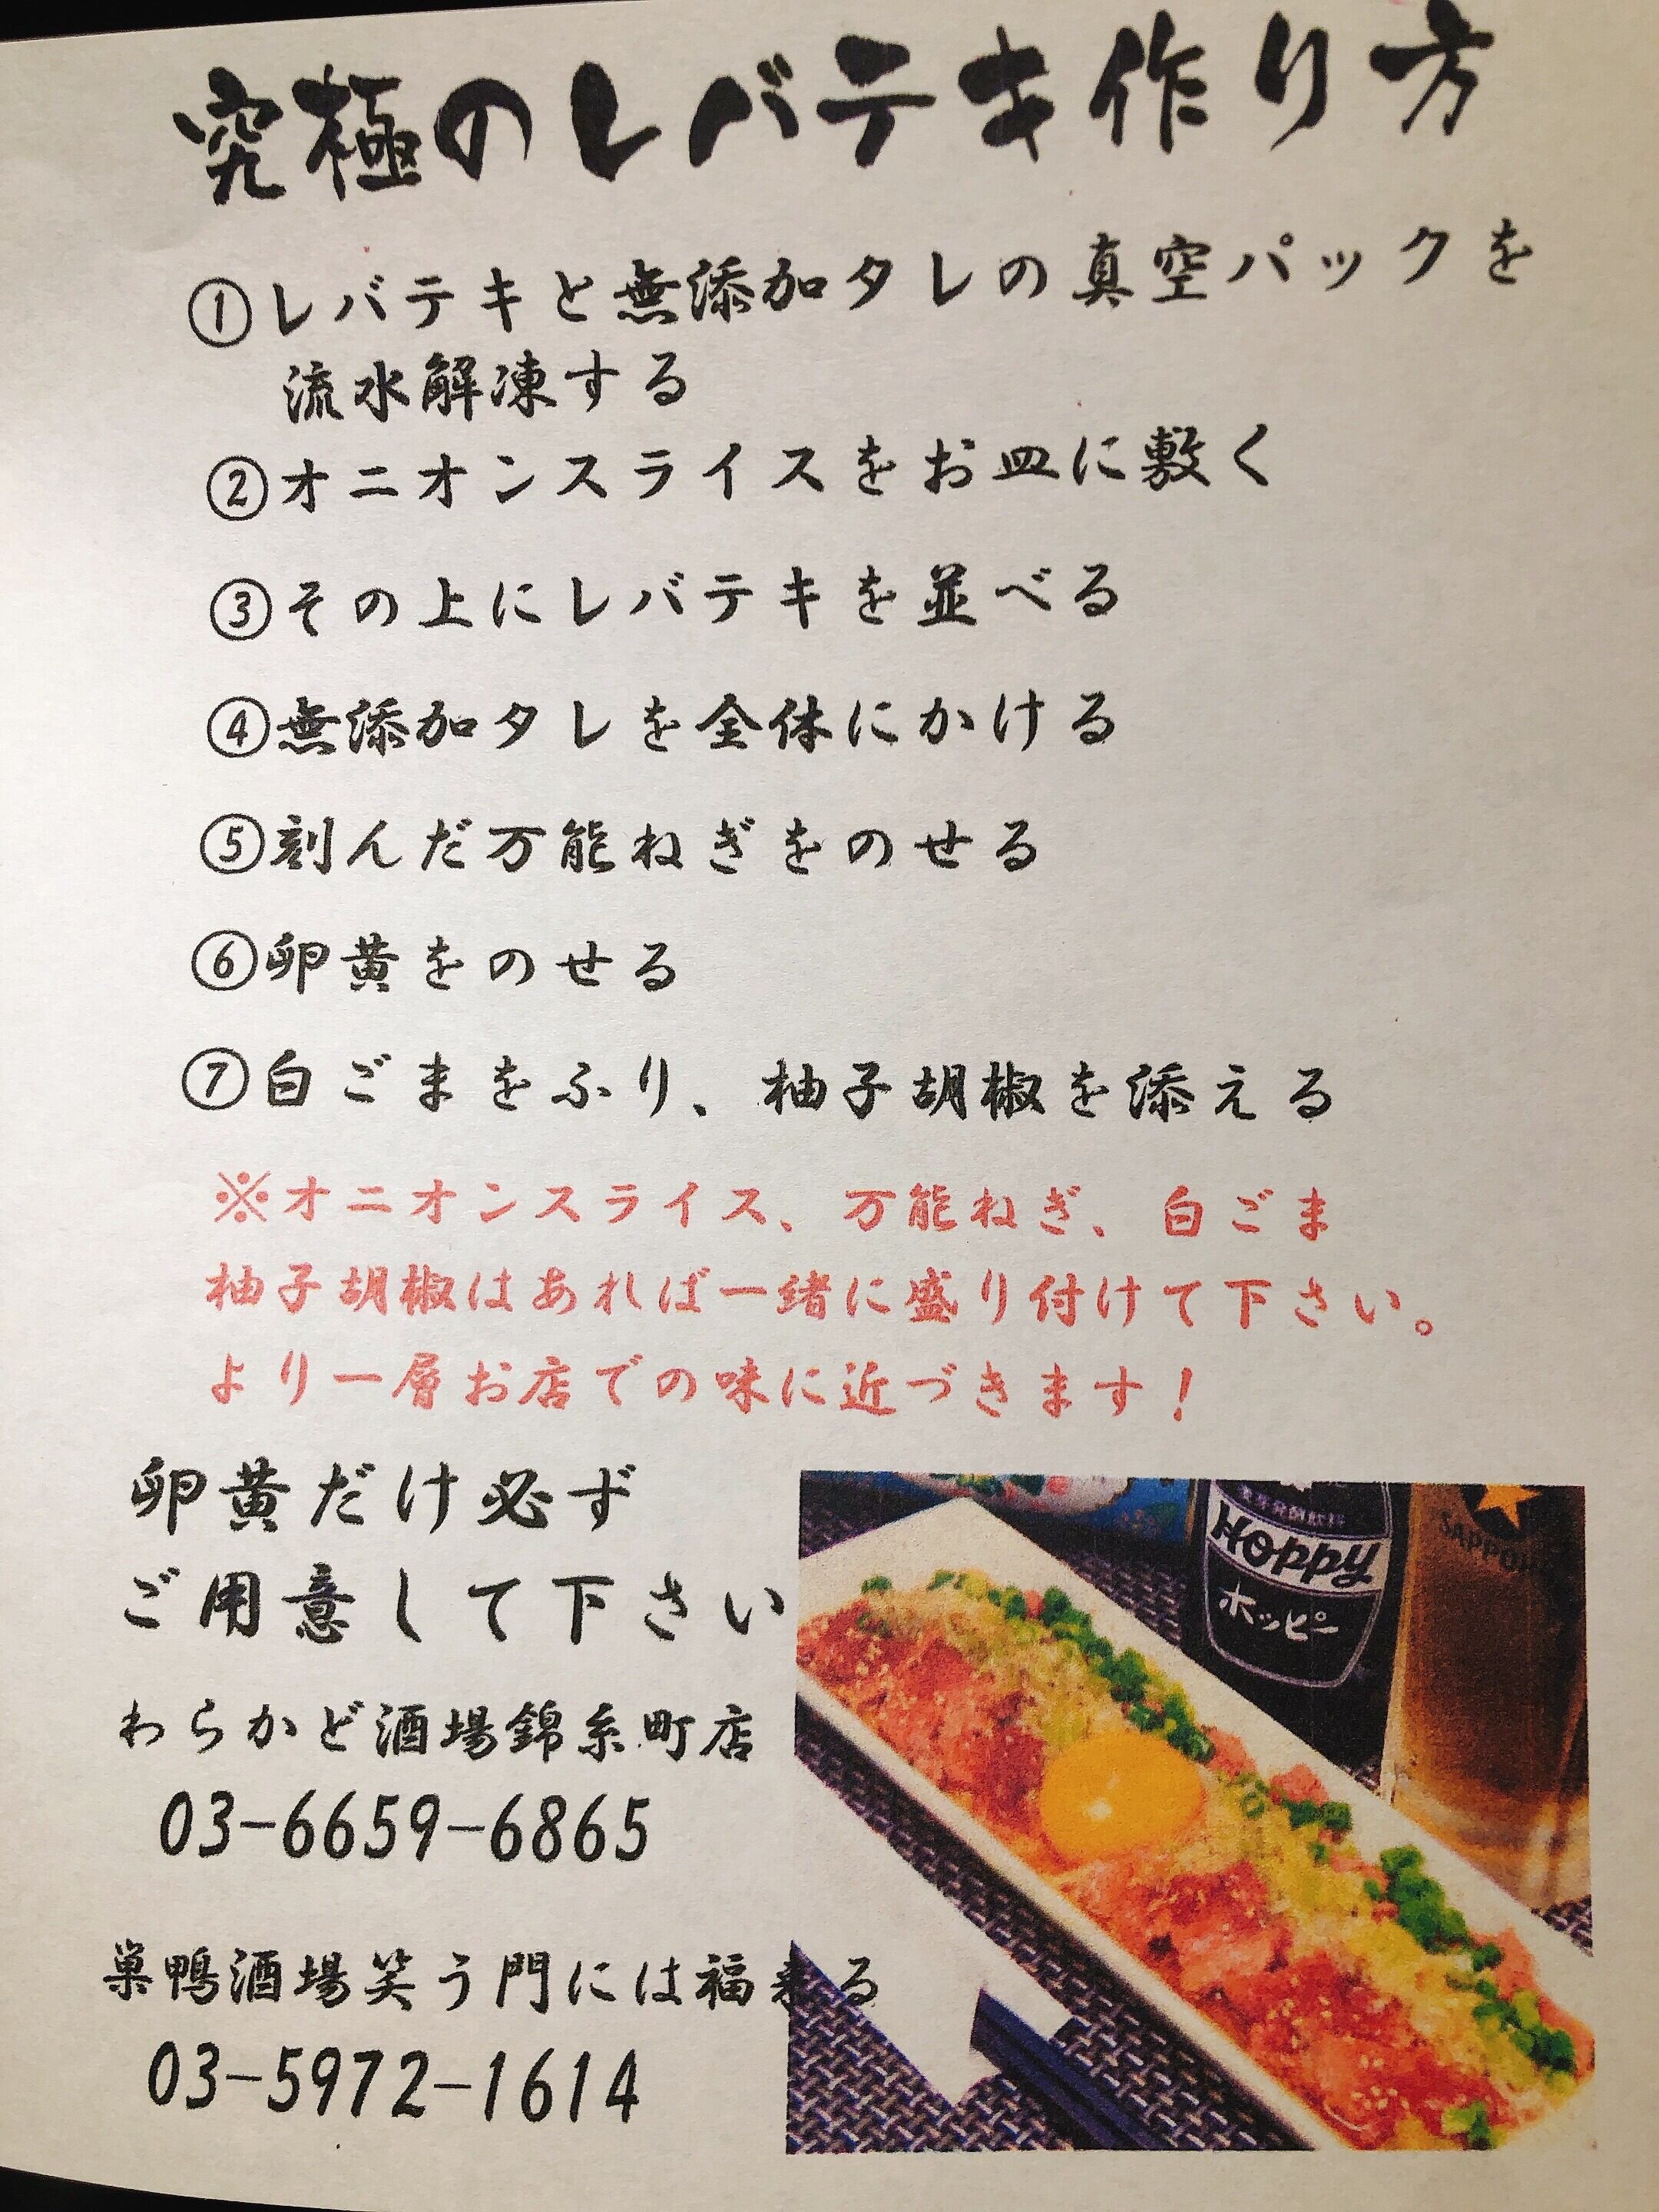 究極のレバテキ作り方
①レバテキと無添加タレの真空パックを
流水解凍する
②オニオンスライスをお皿に敷く
③その上にレバテキを並べる
④無添加タレを全体にかける
⑤刻んだ万能ねぎをのせる
⑥卵黄をのせる
⑦白ごまをふり、柚子胡椒を添える
※オニオンスライス、万能ねぎ、白ごま
柚子胡椒はあれば一緒に盛り付けて下さい。
より一層お店での味に近づきます！
卵黄だけ必ず
ご用意して下さい
Hoppy
ホッピー
SAPPORO
わらかど酒場錦糸町店
03-6659-6865
巣鴨酒場笑う門には福来る
03-5972-1614